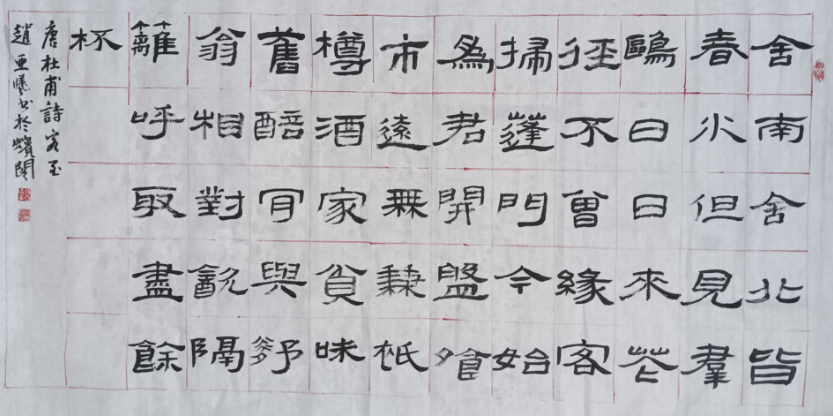 舍南舍北皆
春水但見羣
鷗日日來花
徑不曾緣客
掃蓬門今始
爲君開盤飧
市遠無兼祇
樽酒家貧味
舊醅肯與
翁相對飲隔
籬呼取盡餘
杯
唐杜甫詩客至
趙亞曦书於